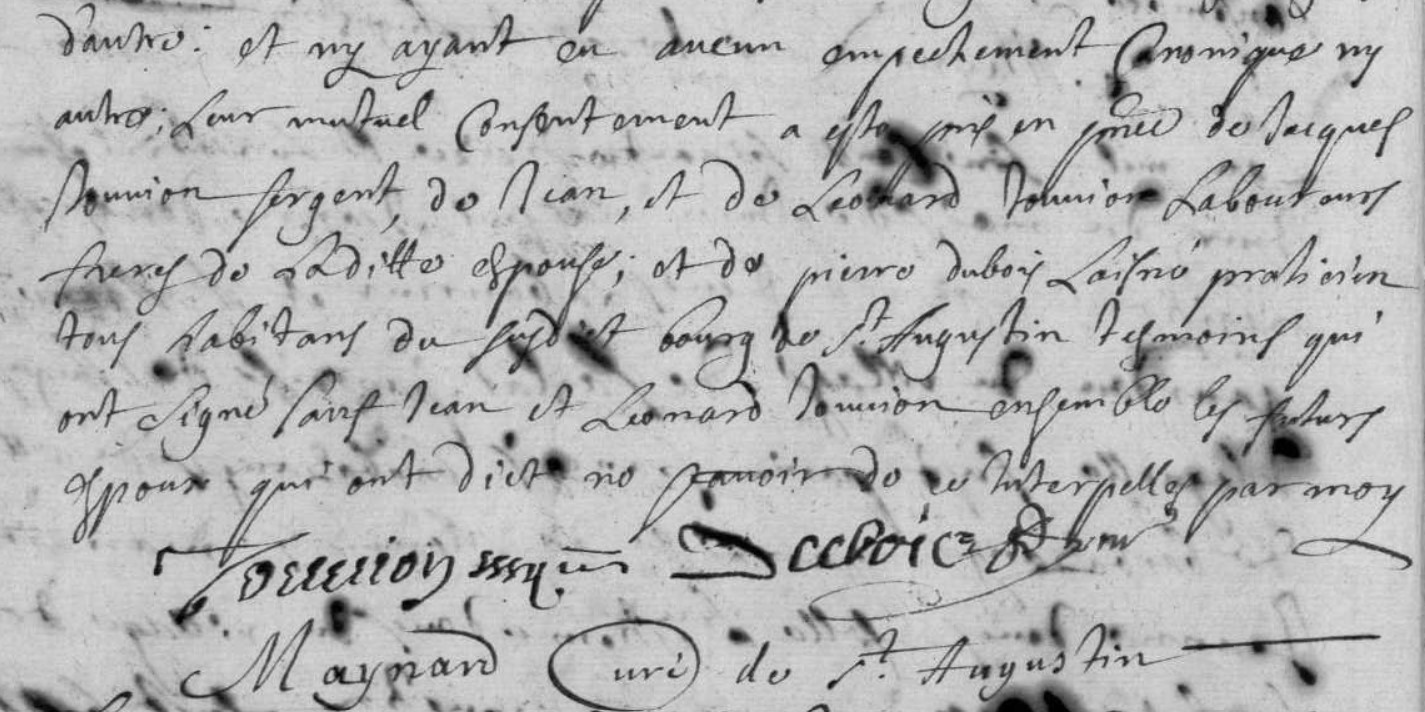 d'autre: et ny ayant eu aucun empechement Canonique ny
autre; Leur mutuel Consentement a esté pris en pñce de Jacques
Jouvion sergent, de Jean, et de Leonard Jouvion Laboureurs
freres de Laditte espouse; et de pierre dubois Laisné praticien
tous habitans du susdit bourg de St. Augustin tesmoins qui
ont signé sauf Jean et Leonard Jouvion ensemble les futurs
espoux qui ont dict ne scavoir de ce Interpelles par moy
Maynard Curé de St. Augustin